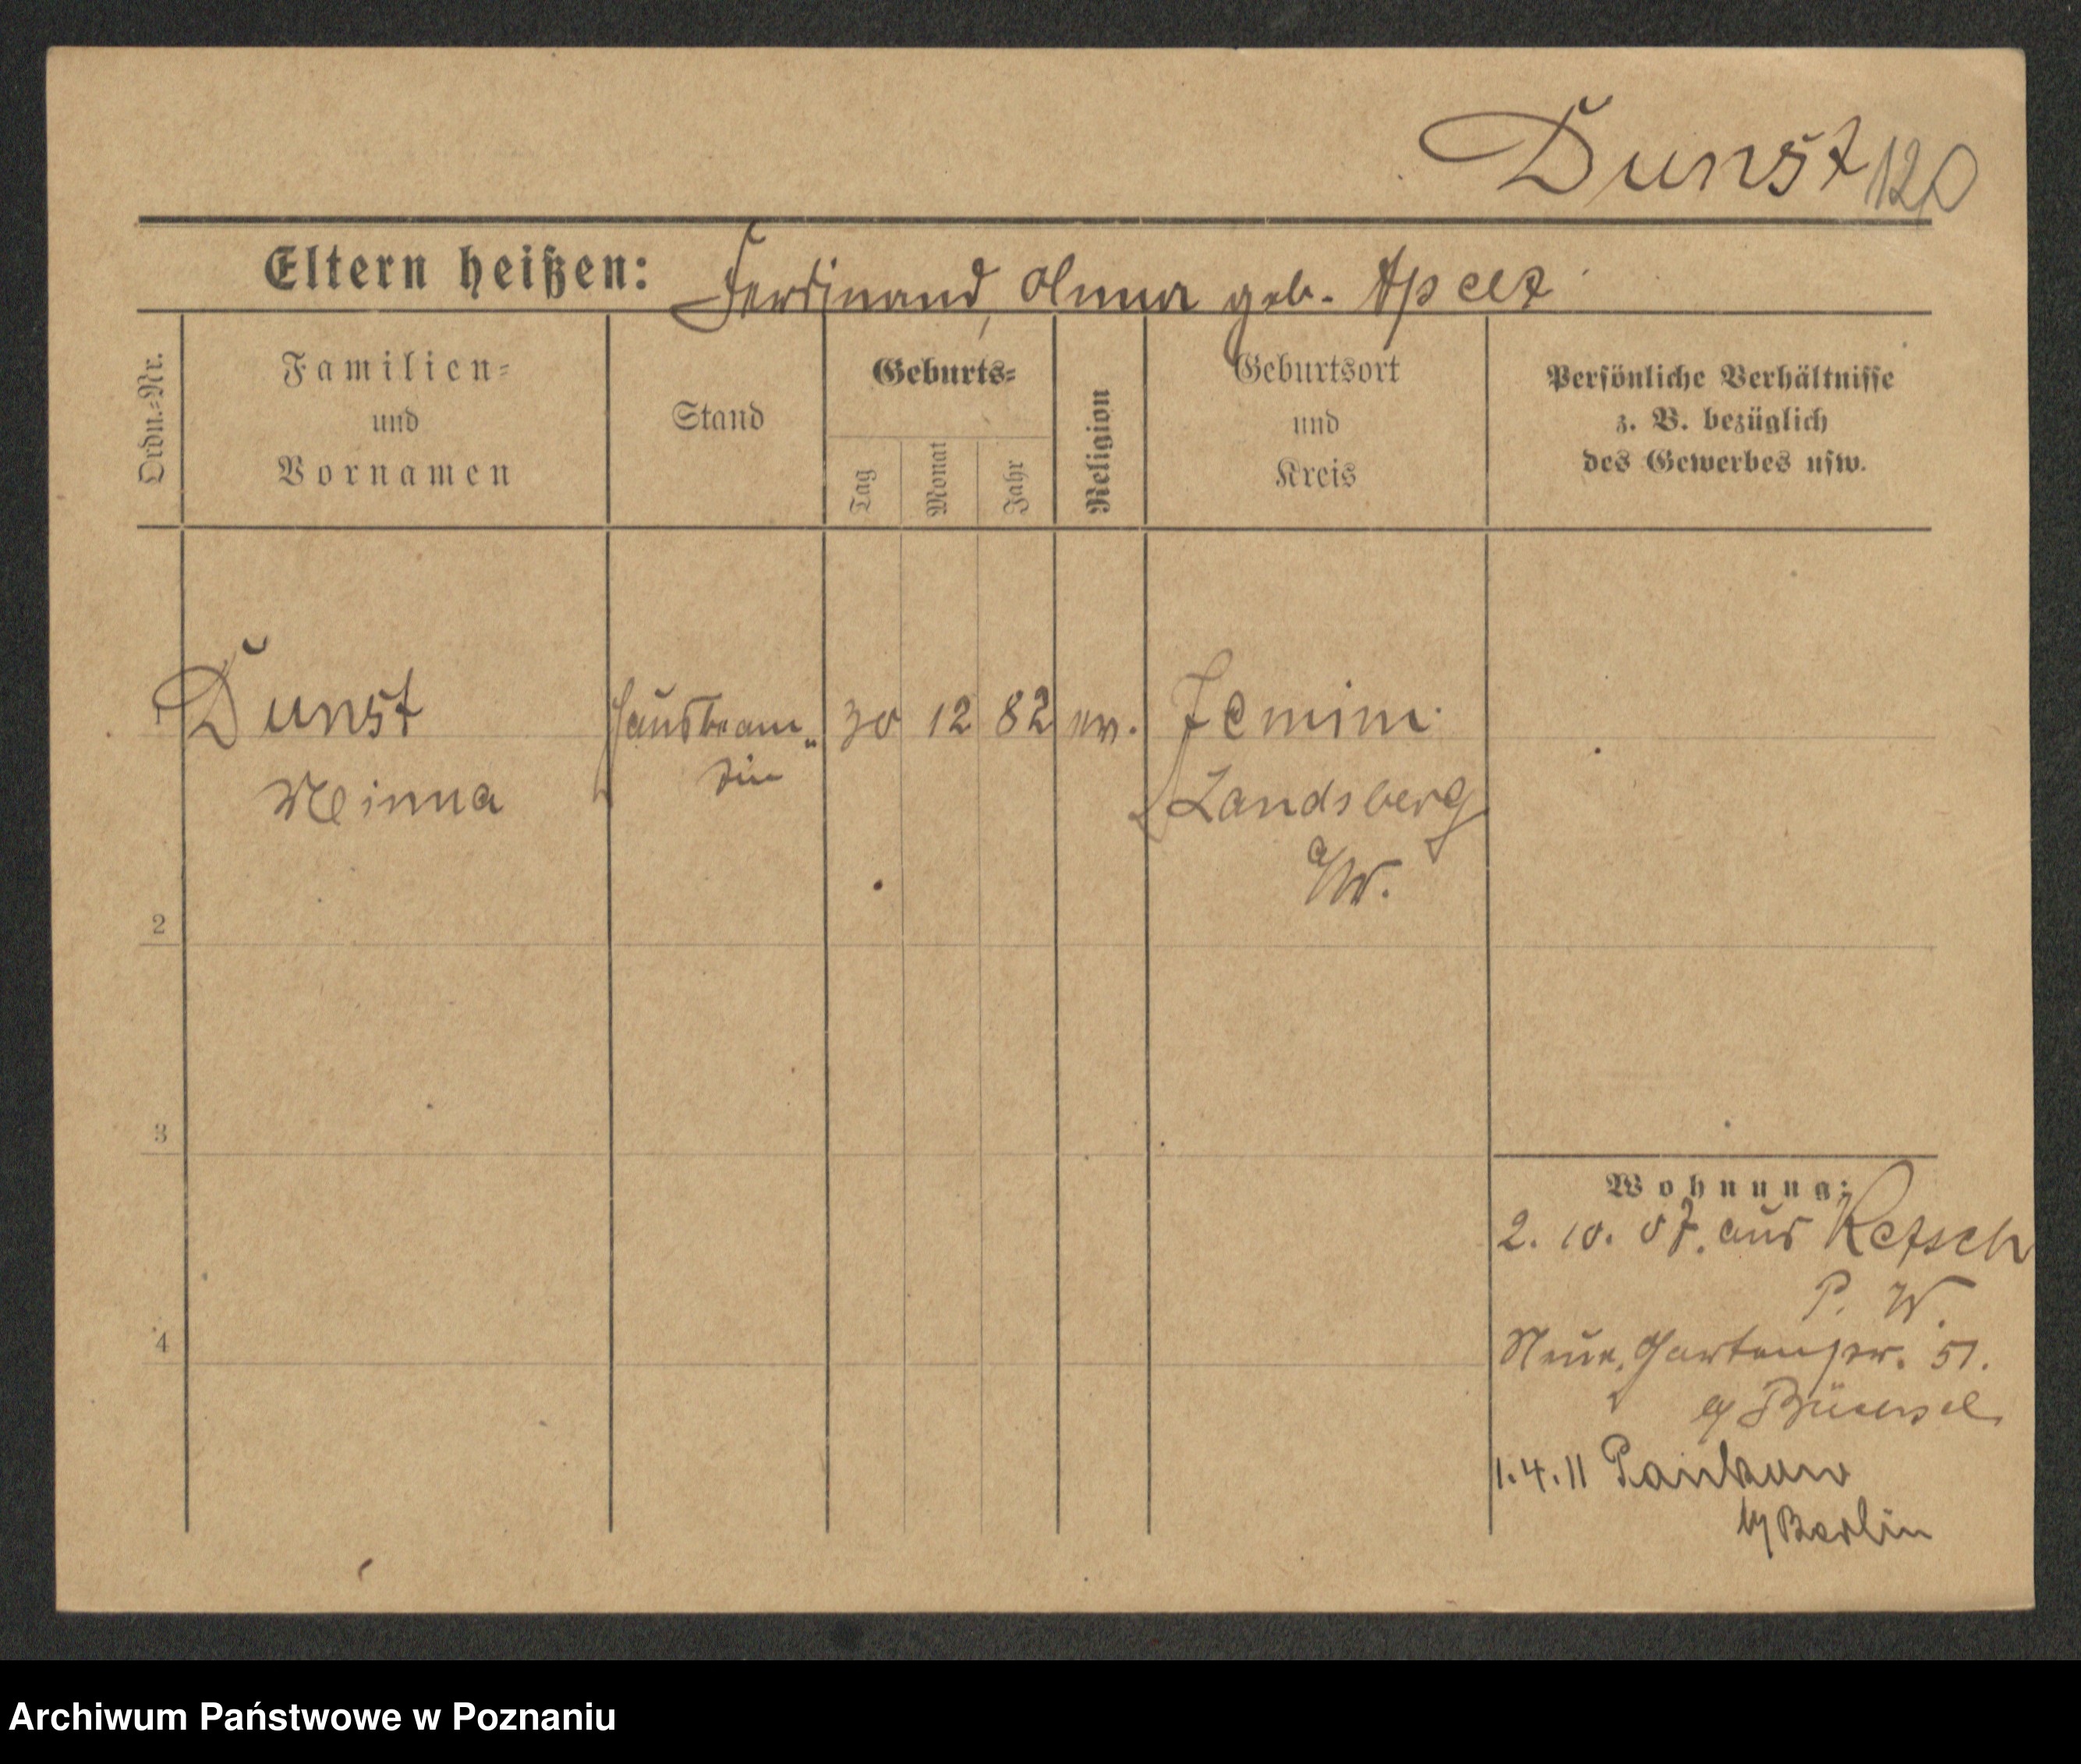 Dunst 120
Eltern heißen: Ferdinand, Anna geb. Apelt
Ordn.=Nr.
Familien=
und
Vornamen
Stand
Geburts=
Tag
Monat
Jahr
Religion
Geburtsort
und
Kreis
Persönliche Verhältnisse
z. B. bezüglich
des Gewerbes usw.
1 Dunst Hausbeam= 30 12 82 ev. Jemim
Minna tin Landsberg
a/W.
2
3
4
Wohnung:
2. 10. 07. aus Retsch
P. W.
Neue Gartenstr. 51.
b/
1.4.11 Pankow
b/ Berlin
Archiwum Państwowe w Poznaniu